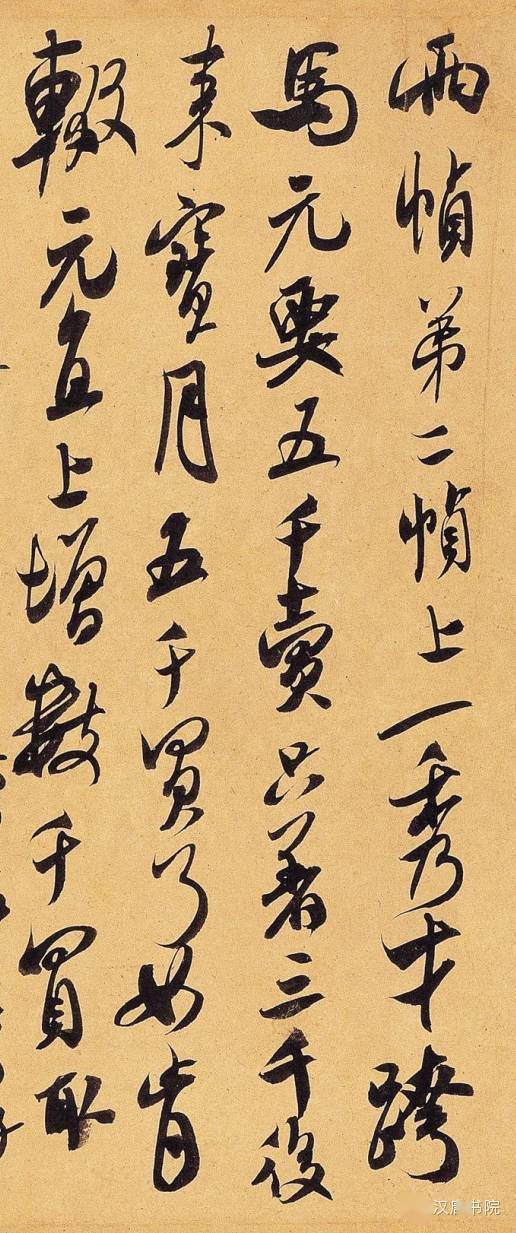 兩幀弟二幀上一秀才跨
馬元要五千賣只著三千後
來寶月五千買了如肯
輟元直上增數千買取
汉 书院